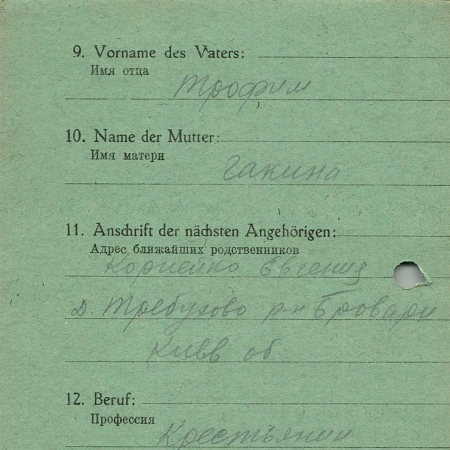 9. Vorname des Vaters:
Имя отца
Трофим
10. Name der Mutter:
Имя матери
Гакина
11. Anschrift der nächsten Angehörigen:
Адрес ближайших родственников
Корнейко Евгения
д. Требухово р-н Бровари
Киев об
12. Beruf:
Профессия
Крестьянин